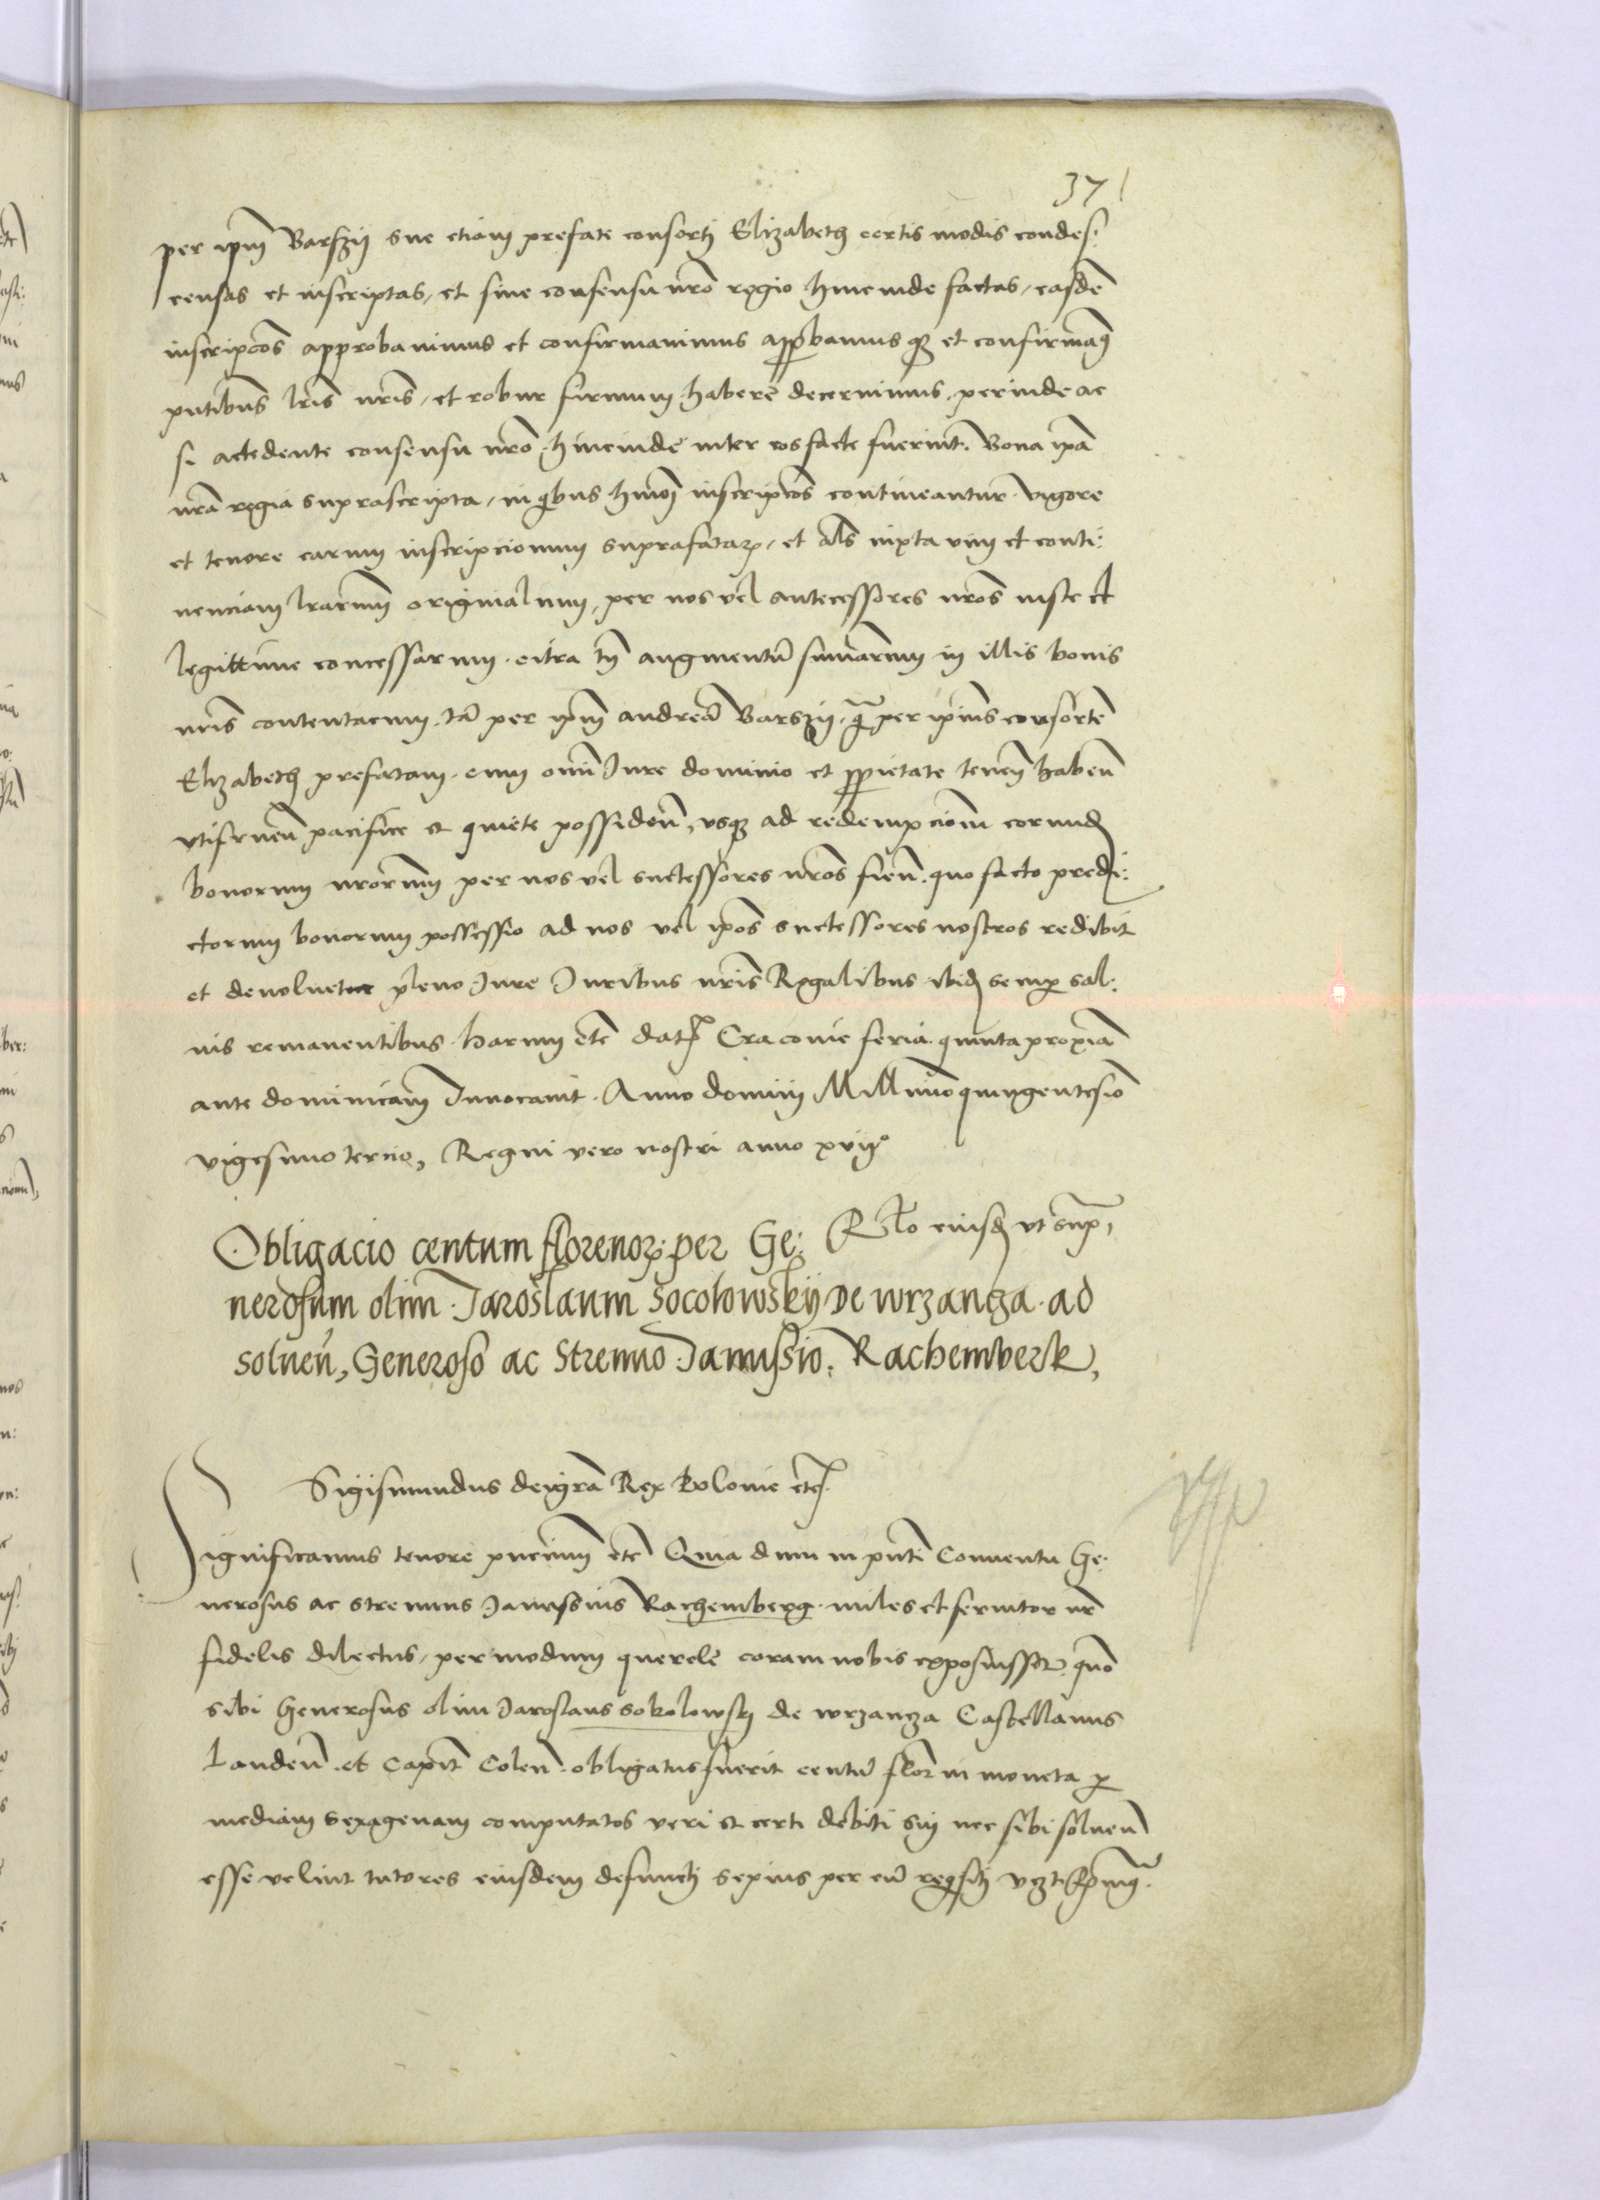 37
per ipm̄ Barszij sue etiam prefate consorti Elizabeth certis modis condes:
censas et inscriptas, et sine consensu nr̄o regio hincinde factas, easdē
inscripc̄oēs approbavimus et confirmavimus approbamus qȝ et confirmamꝰ
pn̄tibus lr̄is nr̄is, et robur firmum habere decernimus, perinde ac
si accedente consensu nr̄o hincinde inter eos facte fuerint. Bona ip̄a
nr̄a regia suprascripta, in qͥbus hm̄oi inscripc̄oēs contineantur vigore
et tenore earum inscripcionum suprafataꝝ, et al̄s iuxta vim et conti:
nenciam lr̄arum originalium, per nos vel antecessores nr̄os iuste et
legittime concessarum. citra tn̄ augmentū sum̄arum in illis bonis
nr̄is contentarum. tā per ipm̄ andreā Barszij, qͣ per ipius consortē
Elizabeth prefatam. cum om̄i Jure dominio et ꝓprietate tenen̄ haben̄
vtifruen̄ pacifice et quiete possiden̄, vsqȝ ad redempcionem eorundē
bonorum nr̄orum per nos vel successores nr̄os fien̄. quo facto predi:
ctorum bonorum possessio ad nos vel ip̄os successores nostros redibit
et devoluetur pleno Jure Juribus nr̄is Regalibus ibidē semꝑ sal:
uis remanentibus. harum etc̄ dat̄ Cracouie feria quinta proxīa
ante dominicam Inuocauit. Anno domini Millimo quingentesīo
vigesimo tercio, Regni vero nostri anno xvijº
Rl̄o eiusdē vt supͣ,
Obligacio centum florenoꝝ. per Ge:
nerosum olim Jaroslaum Socolowskij de wrzancza. ad
soluen̄, Generoso ac Strenuo Janussio. Rachemberk,
Sigismundus dei gr̄a Rex Polonie etc̄.
Significamus tenore pn̄cium etc̄ Quia dum in pn̄ti Conuentu Ge:
nerosus ac strenuus Janussius Rachemberg. miles et seruitor nr̄
fidelis dilectus, per modum querele coram nobis exposuisset. quō
sibi Generosus olim Jaroslaus sokolowskj de wrzancza Castellanus
Landen̄. et Capit̄ Colen̄. obligatus fuerit centū flor̄ in moneta ꝑ
mediam sexagenam computatos veri et certi debiti sui nec sibi soluen̄
esse velint tutores eiusdem defuncti sepius per eū reqͥsiti